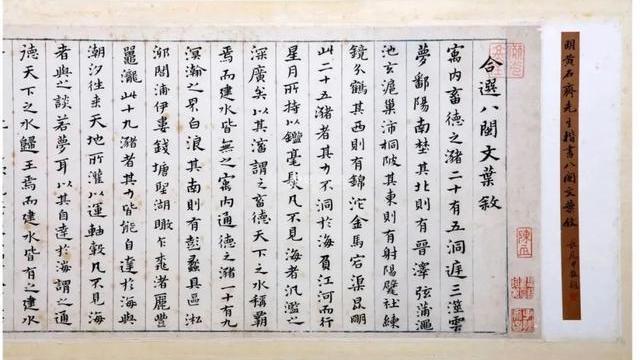 明黃石齋先生楷書八閩文葉敘
合選八閩文葉敘
寓內畜德之潴二十有五洞庭三澨雲
夢鄱陽南埜其北則有晉澤弦蒲漚
池玄滬巢沛桐陂其東則有射陽甓社練
鏡分鶴其西則有錦沱金馬宕渠昆明
此二十五潴者其力不洞於海負江河而行
星月所持以鑑毫髮凡不見海者汎濫之
深廣矣以其濳謂之畜德天下之水稱霸
焉而建水皆無之寓內通德之潴一十有九
溟瀚之界白浪其南則有彭蠡具區淞
泖閤浦伊婁錢塘聖湖瞰乍者麗豐
瀧此十九潴者其力皆能自達於海與
潮汐往來天地所灌以運軸轂凡不見海
者與之談若夢耳以其自達於海謂之通
德天下之水歸王焉而建水皆有之建水